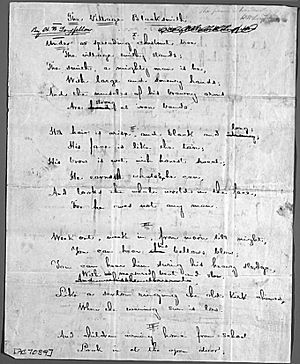 The Village Blacksmith.
By H. W. Longfellow
Under a spreading chestnut tree
The village smithy stands;
The smith, a mighty man is he,
With large and sinewy hands,
And the muscles of his brawny arms
Are strong as iron bands
His hair is crisp, and black and long,
His face is like the tan;
His brow is wet with honest sweat,
He earns whate'er he can,
And looks the whole world in the face,
For he owes not any man.
Week out, week in, from morn till night,
You can hear his bellows blow;
You can hear him swing his heavy sledge,
With measured beat and slow,
Like a sexton ringing the old kirk chimes,
When the evening sun is low.
And children coming home from school
Look in at the open door;